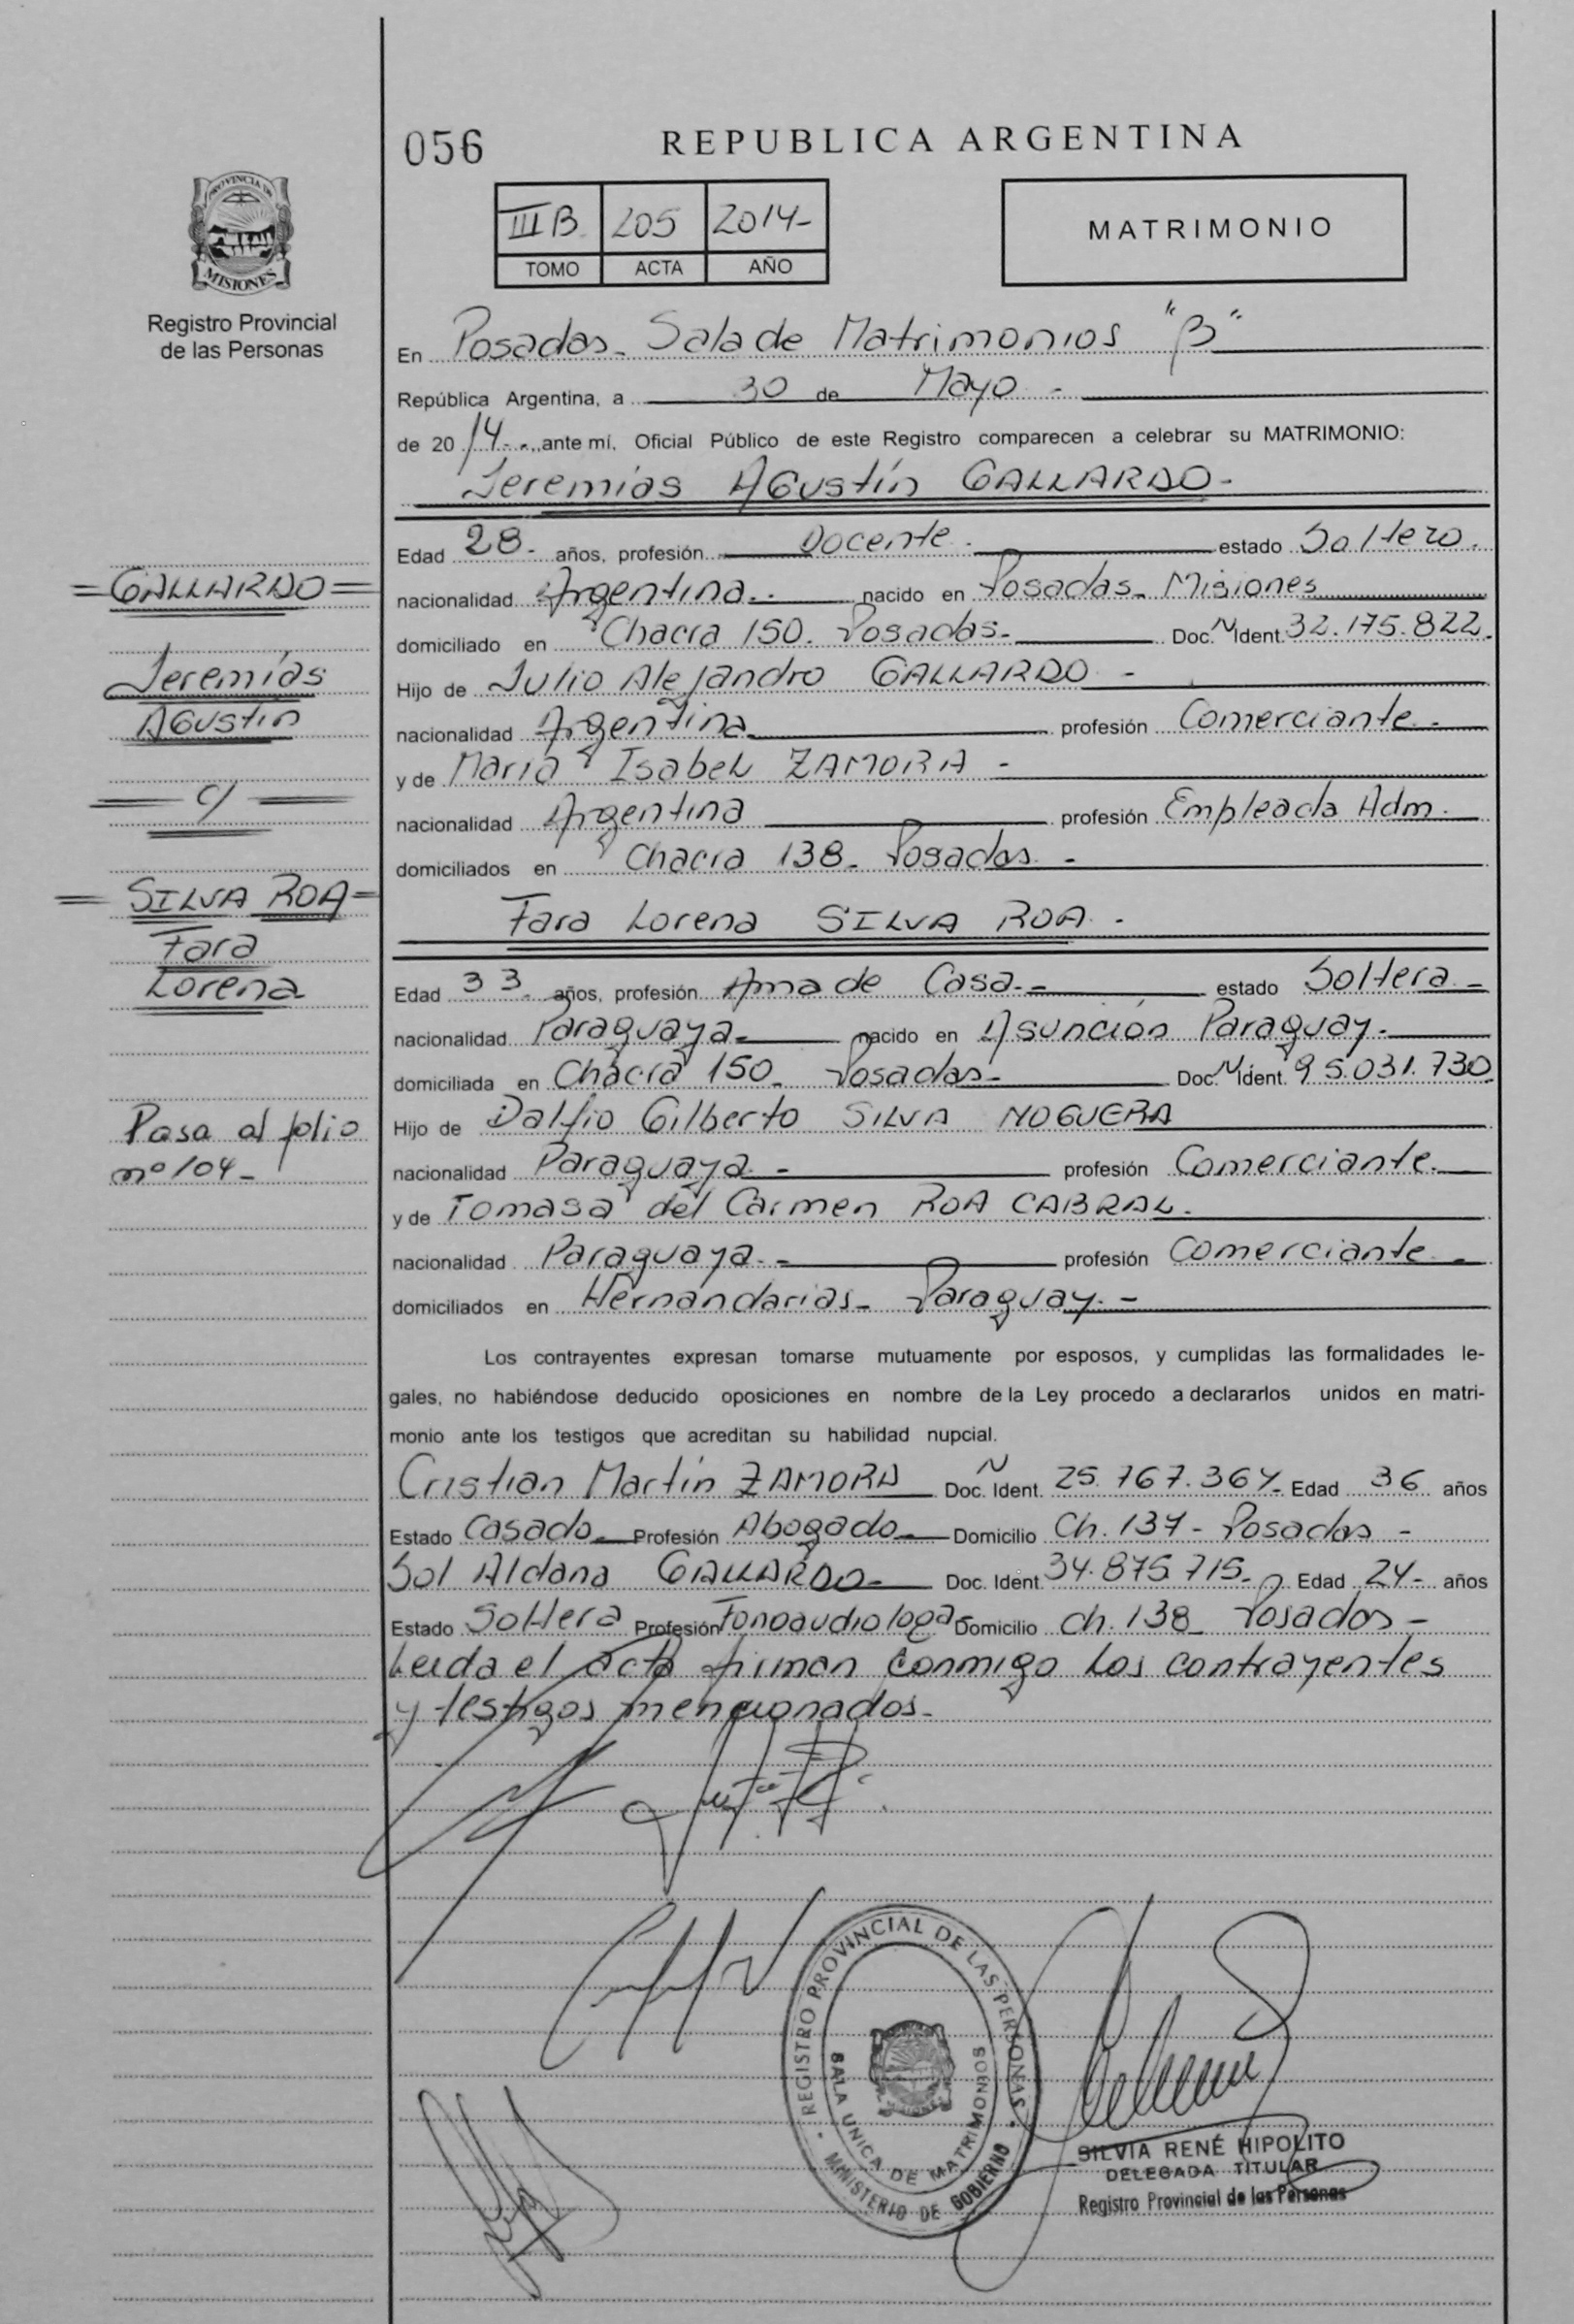 056
REPUBLICA ARGENTINA
PROVINCIA DE
MISIONES
Registro Provincial
de las Personas
III B. 205 2014-
TOMO ACTA AÑO
MATRIMONIO
En Posadas- Sala de Matrimonios "B"
República Argentina, a 30 de Mayo -
de 20 14- ante mí, Oficial Público de este Registro comparecen a celebrar su MATRIMONIO:
Jeremías Agustín GALLARDO-
Edad 28- años, profesión Docente- estado Soltero.
nacionalidad Argentina- nacido en Posadas- Misiones
domiciliado en Chacra 150. Posadas- Doc. N Ident. 32.175.822-
Hijo de Julio Alejandro GALLARDO -
nacionalidad Argentina profesión Comerciante-
y de María Isabel ZAMORA -
nacionalidad Argentina profesión Empleada Adm.
domiciliados en Chacra 138- Posadas -
Fara Lorena SILVA ROA -
Edad 33- años, profesión Ama de Casa- estado Soltera-
nacionalidad Paraguaya- nacido en Asunción Paraguay-
domiciliada en Chacra 150- Posadas- Doc. N Ident. 95.031.730
Hijo de Dalfio Gilberto SILVA NOGUERA
nacionalidad Paraguaya- profesión Comerciante-
y de Tomasa del Carmen ROA CABRAL-
nacionalidad Paraguaya- profesión Comerciante-
domiciliados en Hernandarias- Paraguay-
Los contrayentes expresan tomarse mutuamente por esposos, y cumplidas las formalidades le-
gales, no habiéndose deducido oposiciones en nombre de la Ley procedo a declararlos unidos en matri-
monio ante los testigos que acreditan su habilidad nupcial.
Cristian Martín ZAMORA Doc. N Ident. 25.767.367- Edad 36 años
Estado Casado- Profesión Abogado- Domicilio Ch. 137- Posadas-
Sol Aldana GALLARDO- Doc. Ident. 34.875.715- Edad 24- años
Estado Soltera Profesión Fonoaudiologa- Domicilio Ch. 138- Posadas-
Leida el acta firman conmigo los contrayentes
y testigos mencionados-
=GALLARDO=
Jeremías
Agustín
= c/ =
=SILVA ROA=
Fara
Lorena
Pasa al folio
nº 104-
REGISTRO PROVINCIAL DE LAS PERSONAS
SALA UNICA DE MATRIMONIOS
MINISTERIO DE GOBIERNO
SILVIA RENÉ HIPOLITO
DELEGADA TITULAR
Registro Provincial de las Personas